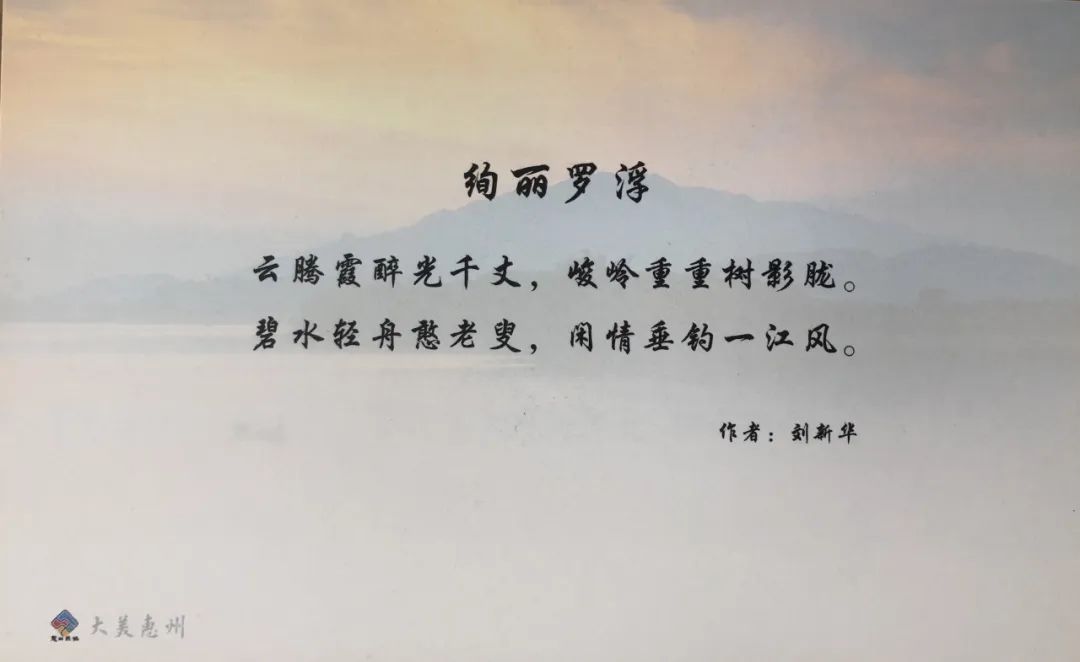 绚丽罗浮
云腾霞醉光千丈，峻岭重重树影胧。
碧水轻舟憨老叟，闲情垂钓一江风。
作者：刘新华
大美惠州